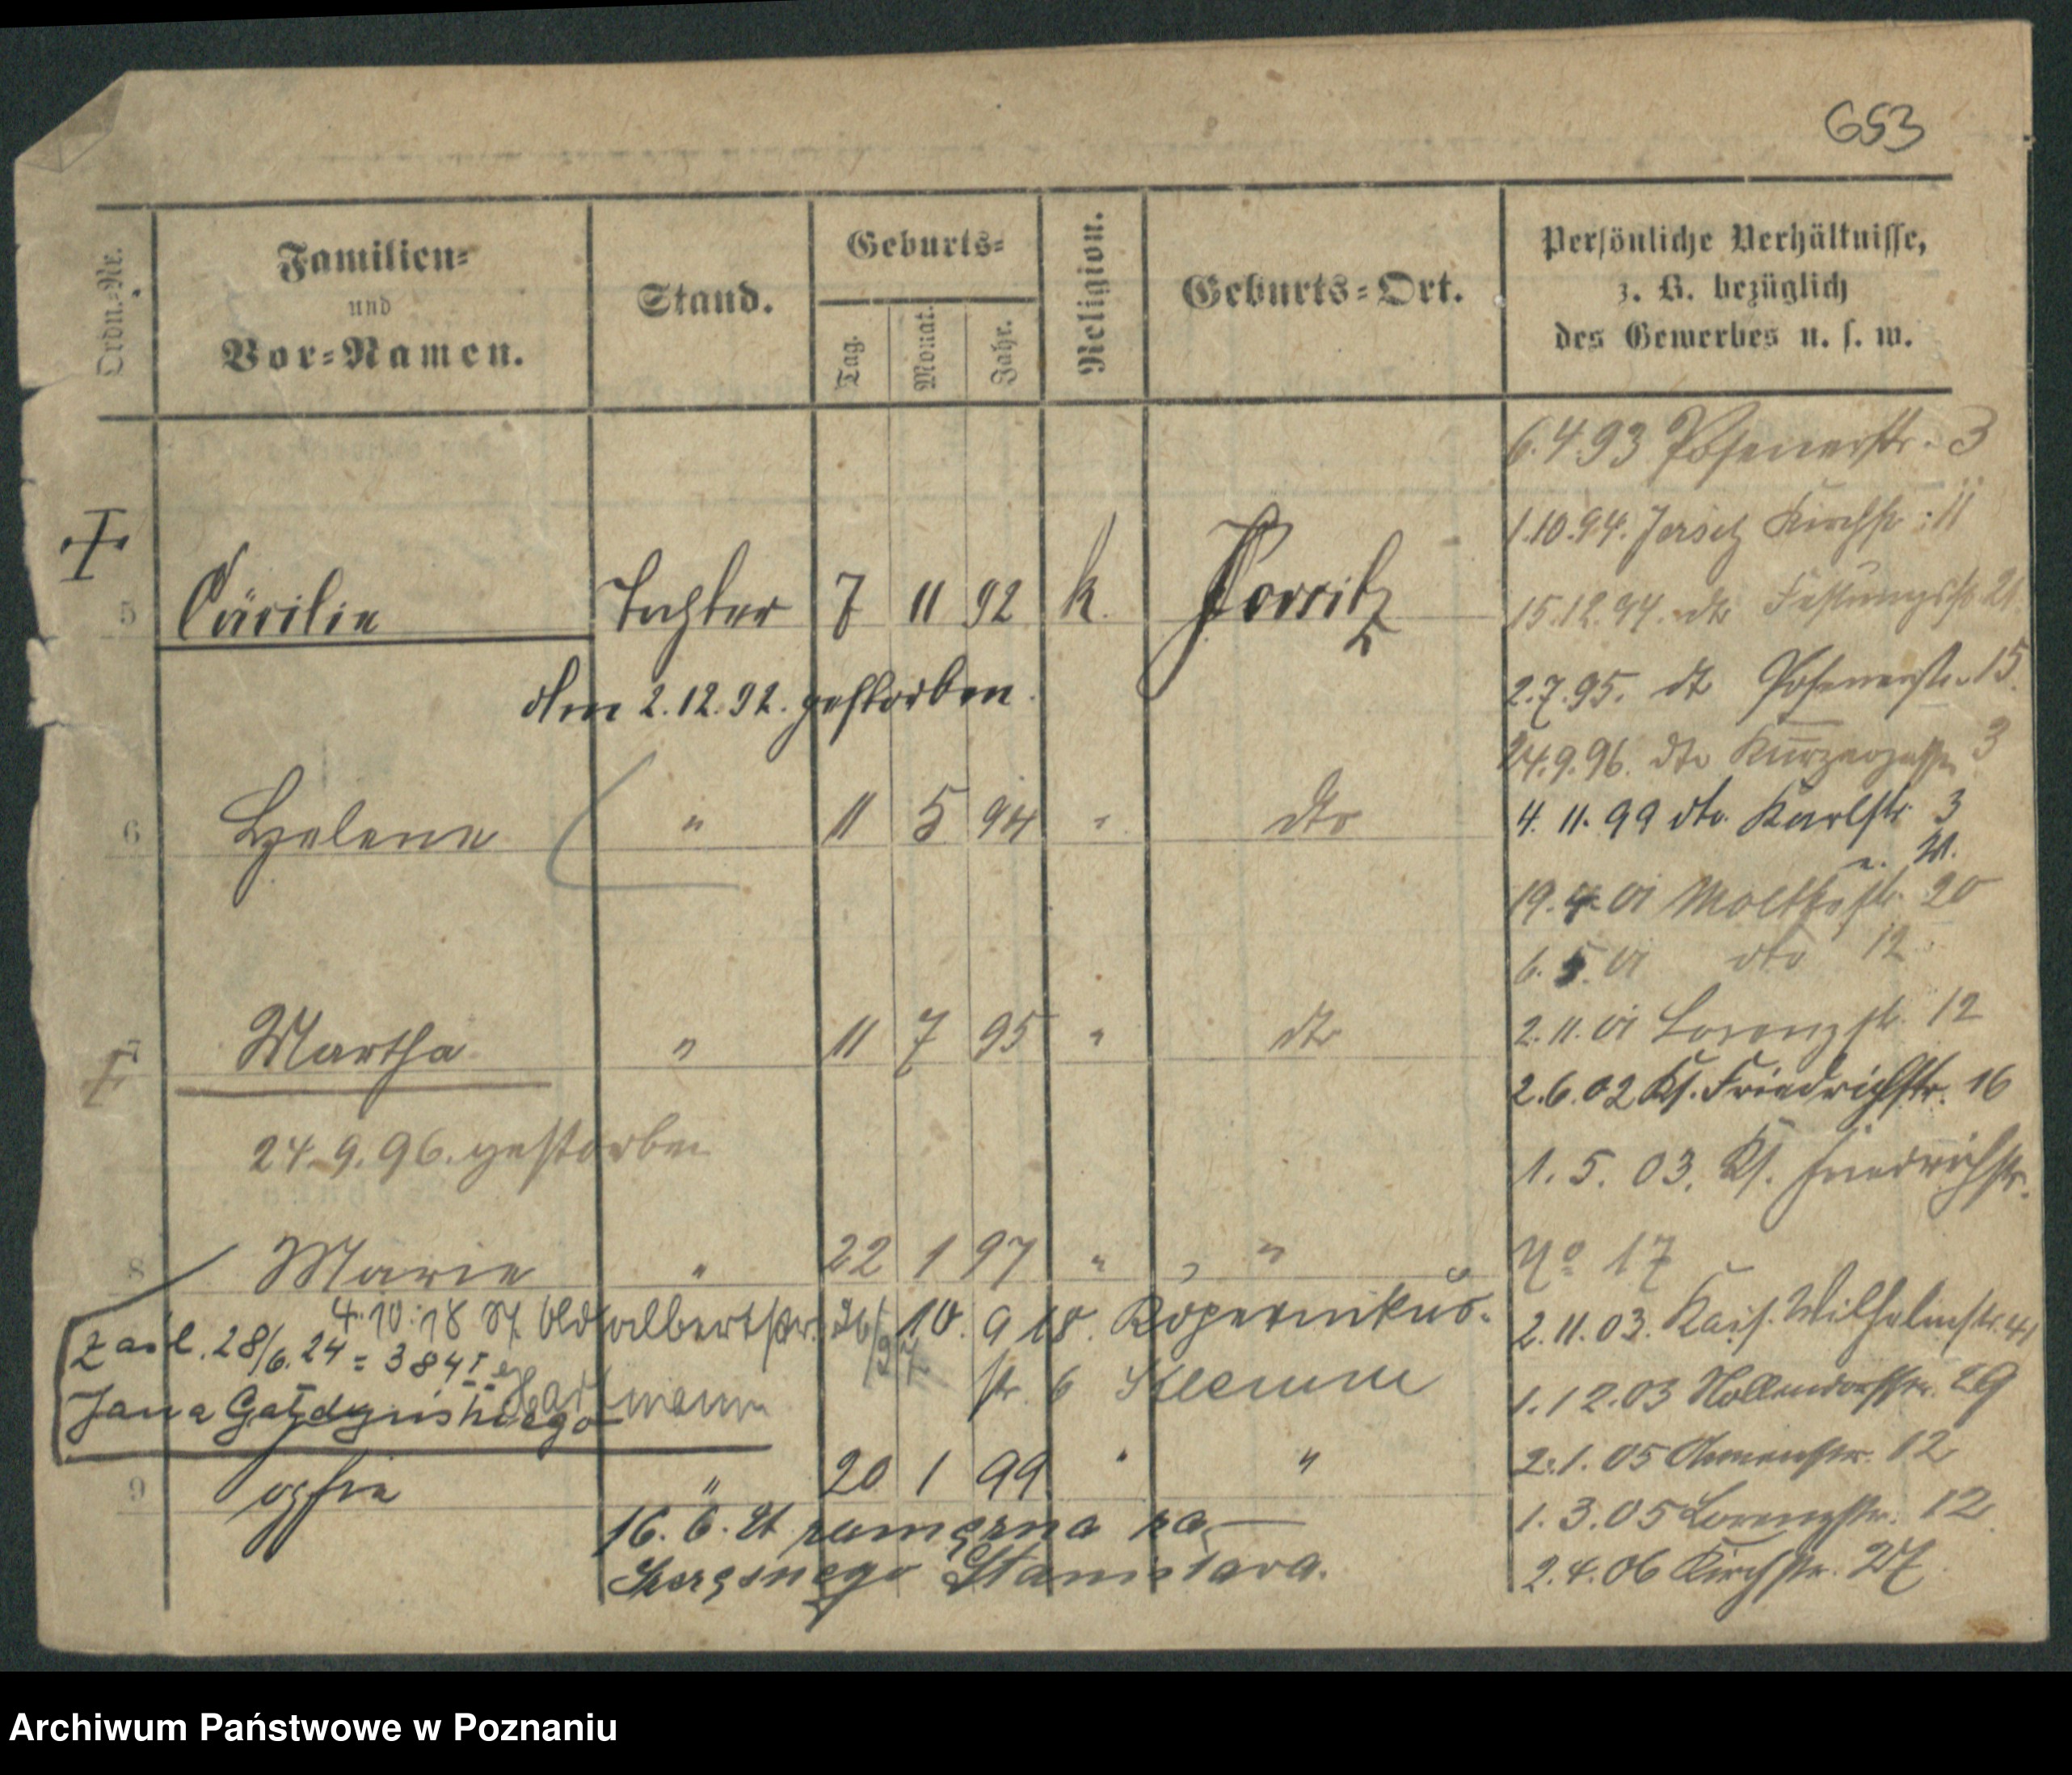 653
Ordn.-Nr.
Familien-
und
Vor-Namen.
Stand.
Geburts-
Tag.
Monat.
Jahr.
Religion.
Geburts-Ort.
Persönliche Verhältnisse,
z. B. bezüglich
des Gewerbes u. s. w.
6.4.93 Posenerstr. 3
1.10.94. Jersitz Kirchstr. 11
5 Cäcilie Tochter 7 11 92 k.
15.12.94. dto Festungsstr 21.
am 2.12.92. gestorben.
2.7.95. dto Posenerstr. 15.
24.9.96. dto Kurzegasse 3
6 Helene " 11 5 94 " dto
4. 11. 99 dto. Karlstr. 3
u. 21.
19.4.01 Moltkestr. 20
6.5.01 dto 12
7 Martha " 11 7 95 " dto
2.11.01 Lorenzstr. 12
2.6.02 Ks. Friedrichstr. 16
24.9.96. gestorben
1.5.03. Ks. Friedrichstr.
No 17
8 Marie " 22 1 97 " "
4.10.18 albertstr. 26/27 10. 9 18. Kopernikus-
str. 6 Klemm
2.11.03. Kais. Wilhelmstr. 41
zaśl. 28/6.24 = 384
Jana Gałdyńskiego
Hartmann
1.12.03 Nollendorfstr. 29
9 Sophie " 20 1 99 " "
2.1.05 Blumenstr. 12
16. 6. 21 zamężna za
Stanisława.
1.3.05 Lorenzstr. 12
2.4.06 Kirchstr. 27.
Archiwum Państwowe w Poznaniu